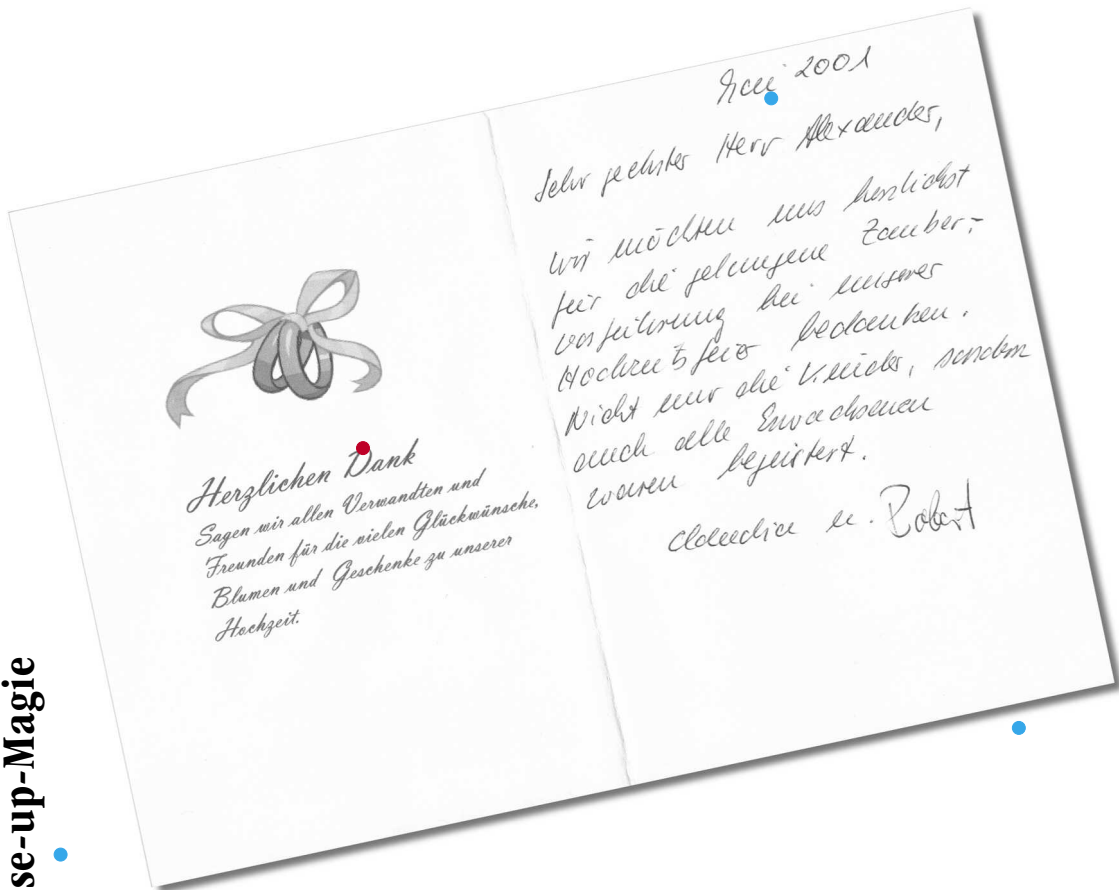 Herzlichen Dank
Sagen wir allen Verwandten und
Freunden für die vielen Glückwünsche,
Blumen und Geschenke zu unserer
Hochzeit.
Mai 2001
Sehr geehrter Herr Alexander,
wir möchten uns herzlichst
für die gelungene Zauber-
vorführung bei unserer
Hochzeitsfeier bedanken.
Nicht nur die Kinder, sondern
auch alle Erwachsenen
waren begeistert.
Claudia u. Robert
se-up-Magie